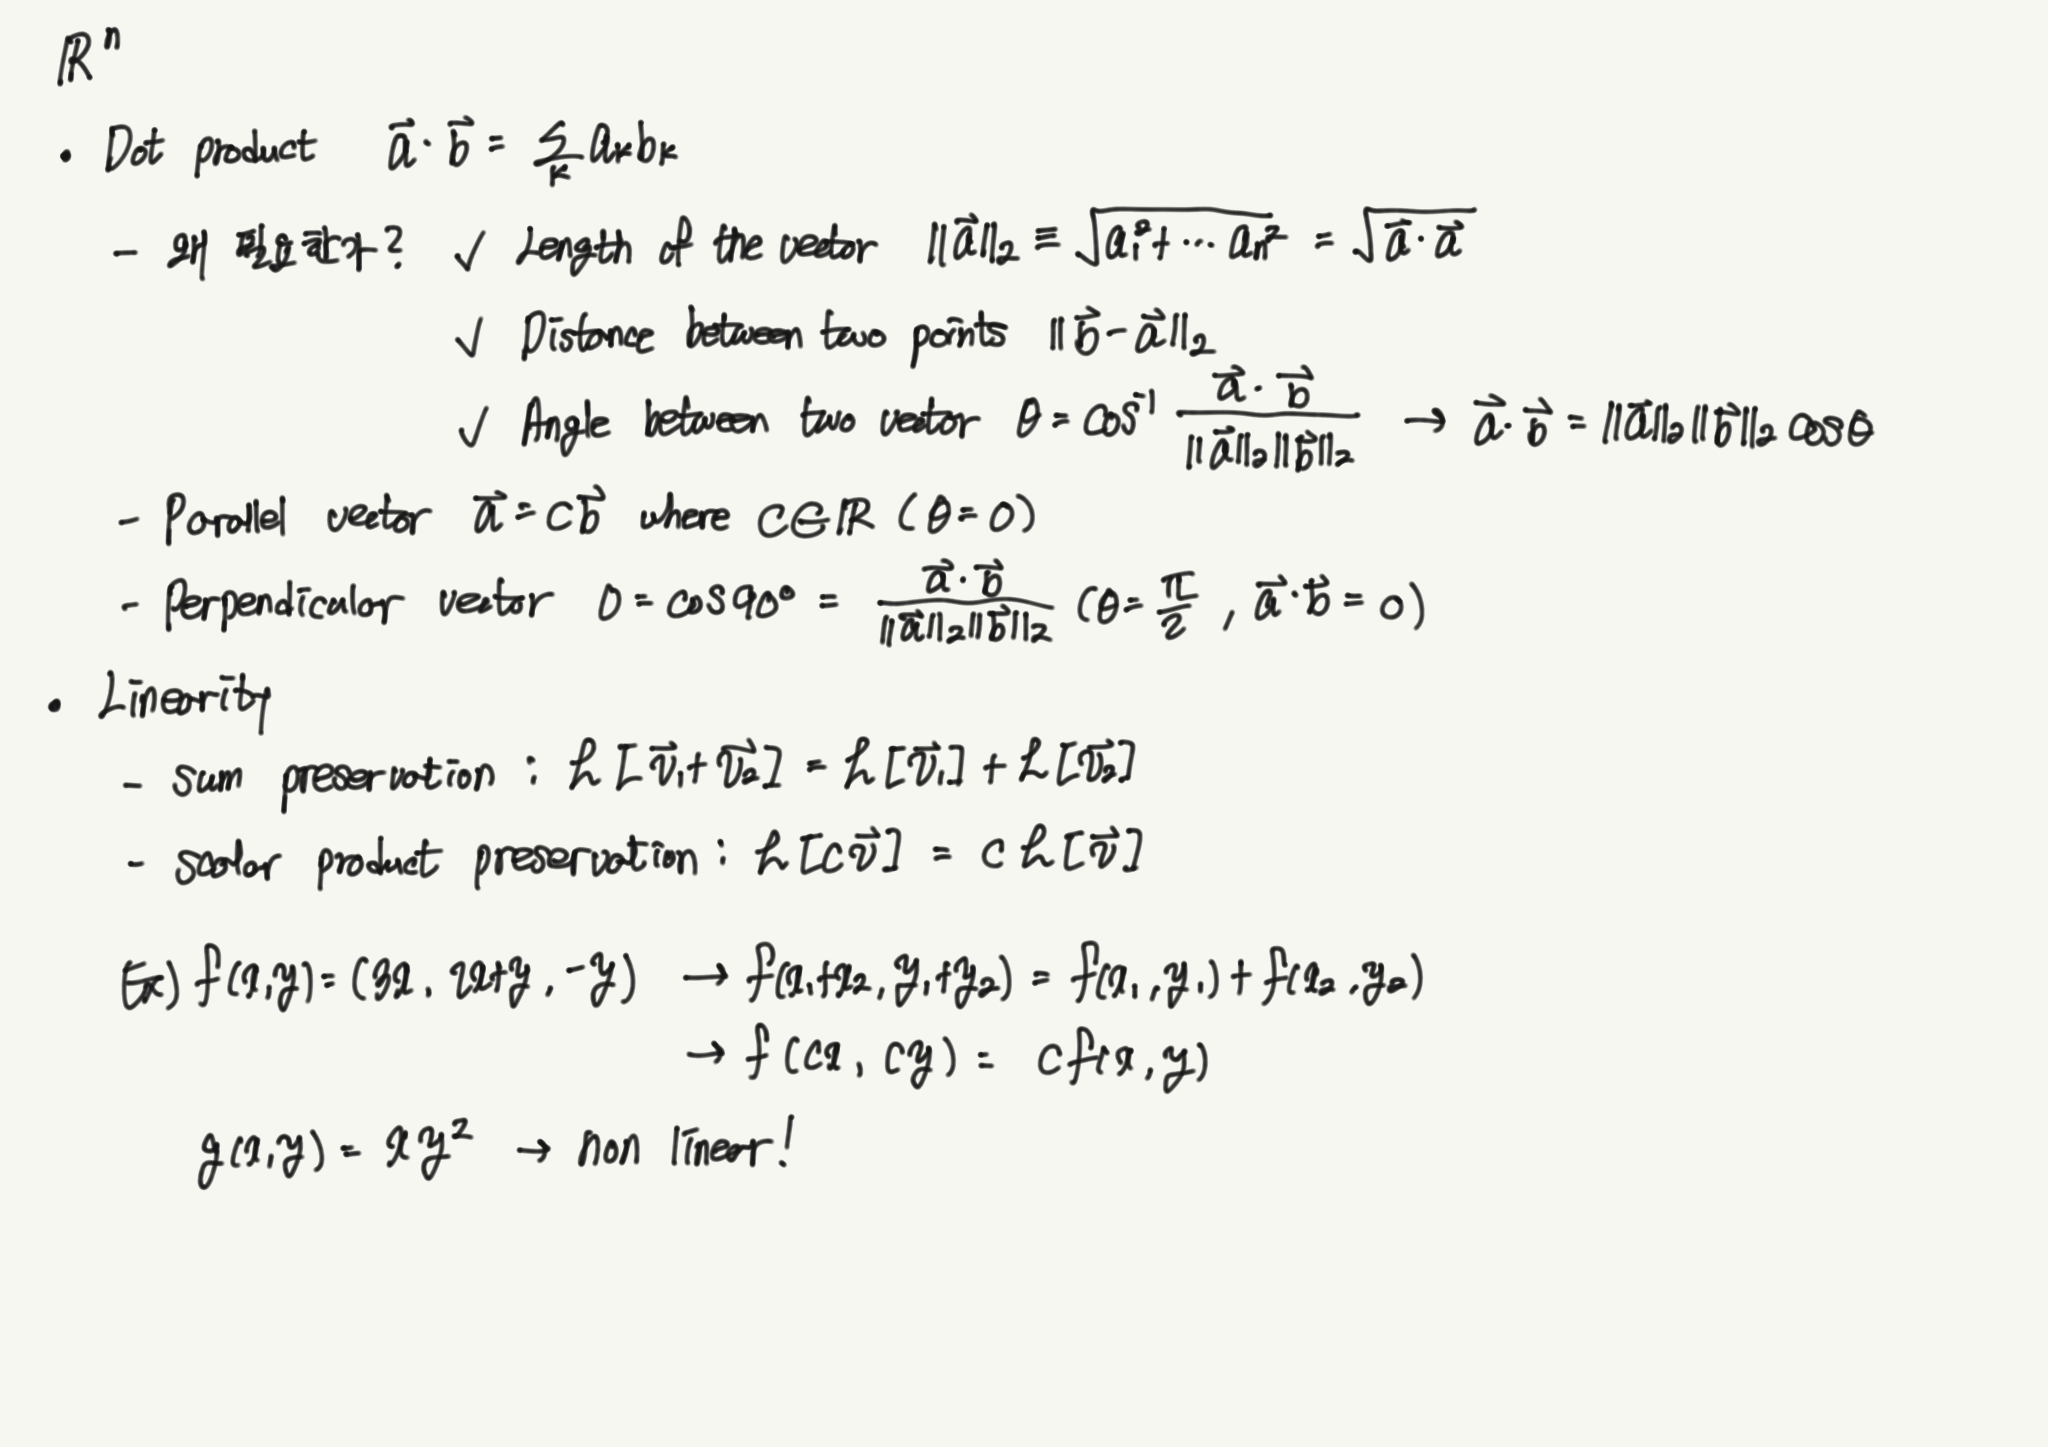 ℝⁿ
• Dot product a⃗ · b⃗ = Σₖ aₖbₖ
- 왜 필요할까? ✓ Length of the vector ||a⃗||₂ ≡ √(a₁² + ⋯ aₙ²) = √(a⃗ · a⃗)
✓ Distance between two points ||b⃗ - a⃗||₂
✓ Angle between two vector θ = cos⁻¹ (a⃗ · b⃗)/(||a⃗||₂||b⃗||₂) → a⃗ · b⃗ = ||a⃗||₂||b⃗||₂ cosθ
- Parallel vector a⃗ = cb⃗ where c∈ℝ (θ = 0)
- Perpendicular vector 0 = cos90° = (a⃗ · b⃗)/(||a⃗||₂||b⃗||₂) (θ = π/2, a⃗ · b⃗ = 0)
• Linearity
- sum preservation : ℒ[v⃗₁ + v⃗₂] = ℒ[v⃗₁] + ℒ[v⃗₂]
- scalar product preservation : ℒ[cv⃗] = cℒ[v⃗]
Ex) f(x,y) = (3x, 2x+y, -y) → f(x₁+x₂, y₁+y₂) = f(x₁,y₁) + f(x₂,y₂)
→ f(cx, cy) = cf(x,y)
g(x,y) = xy² → non linear!